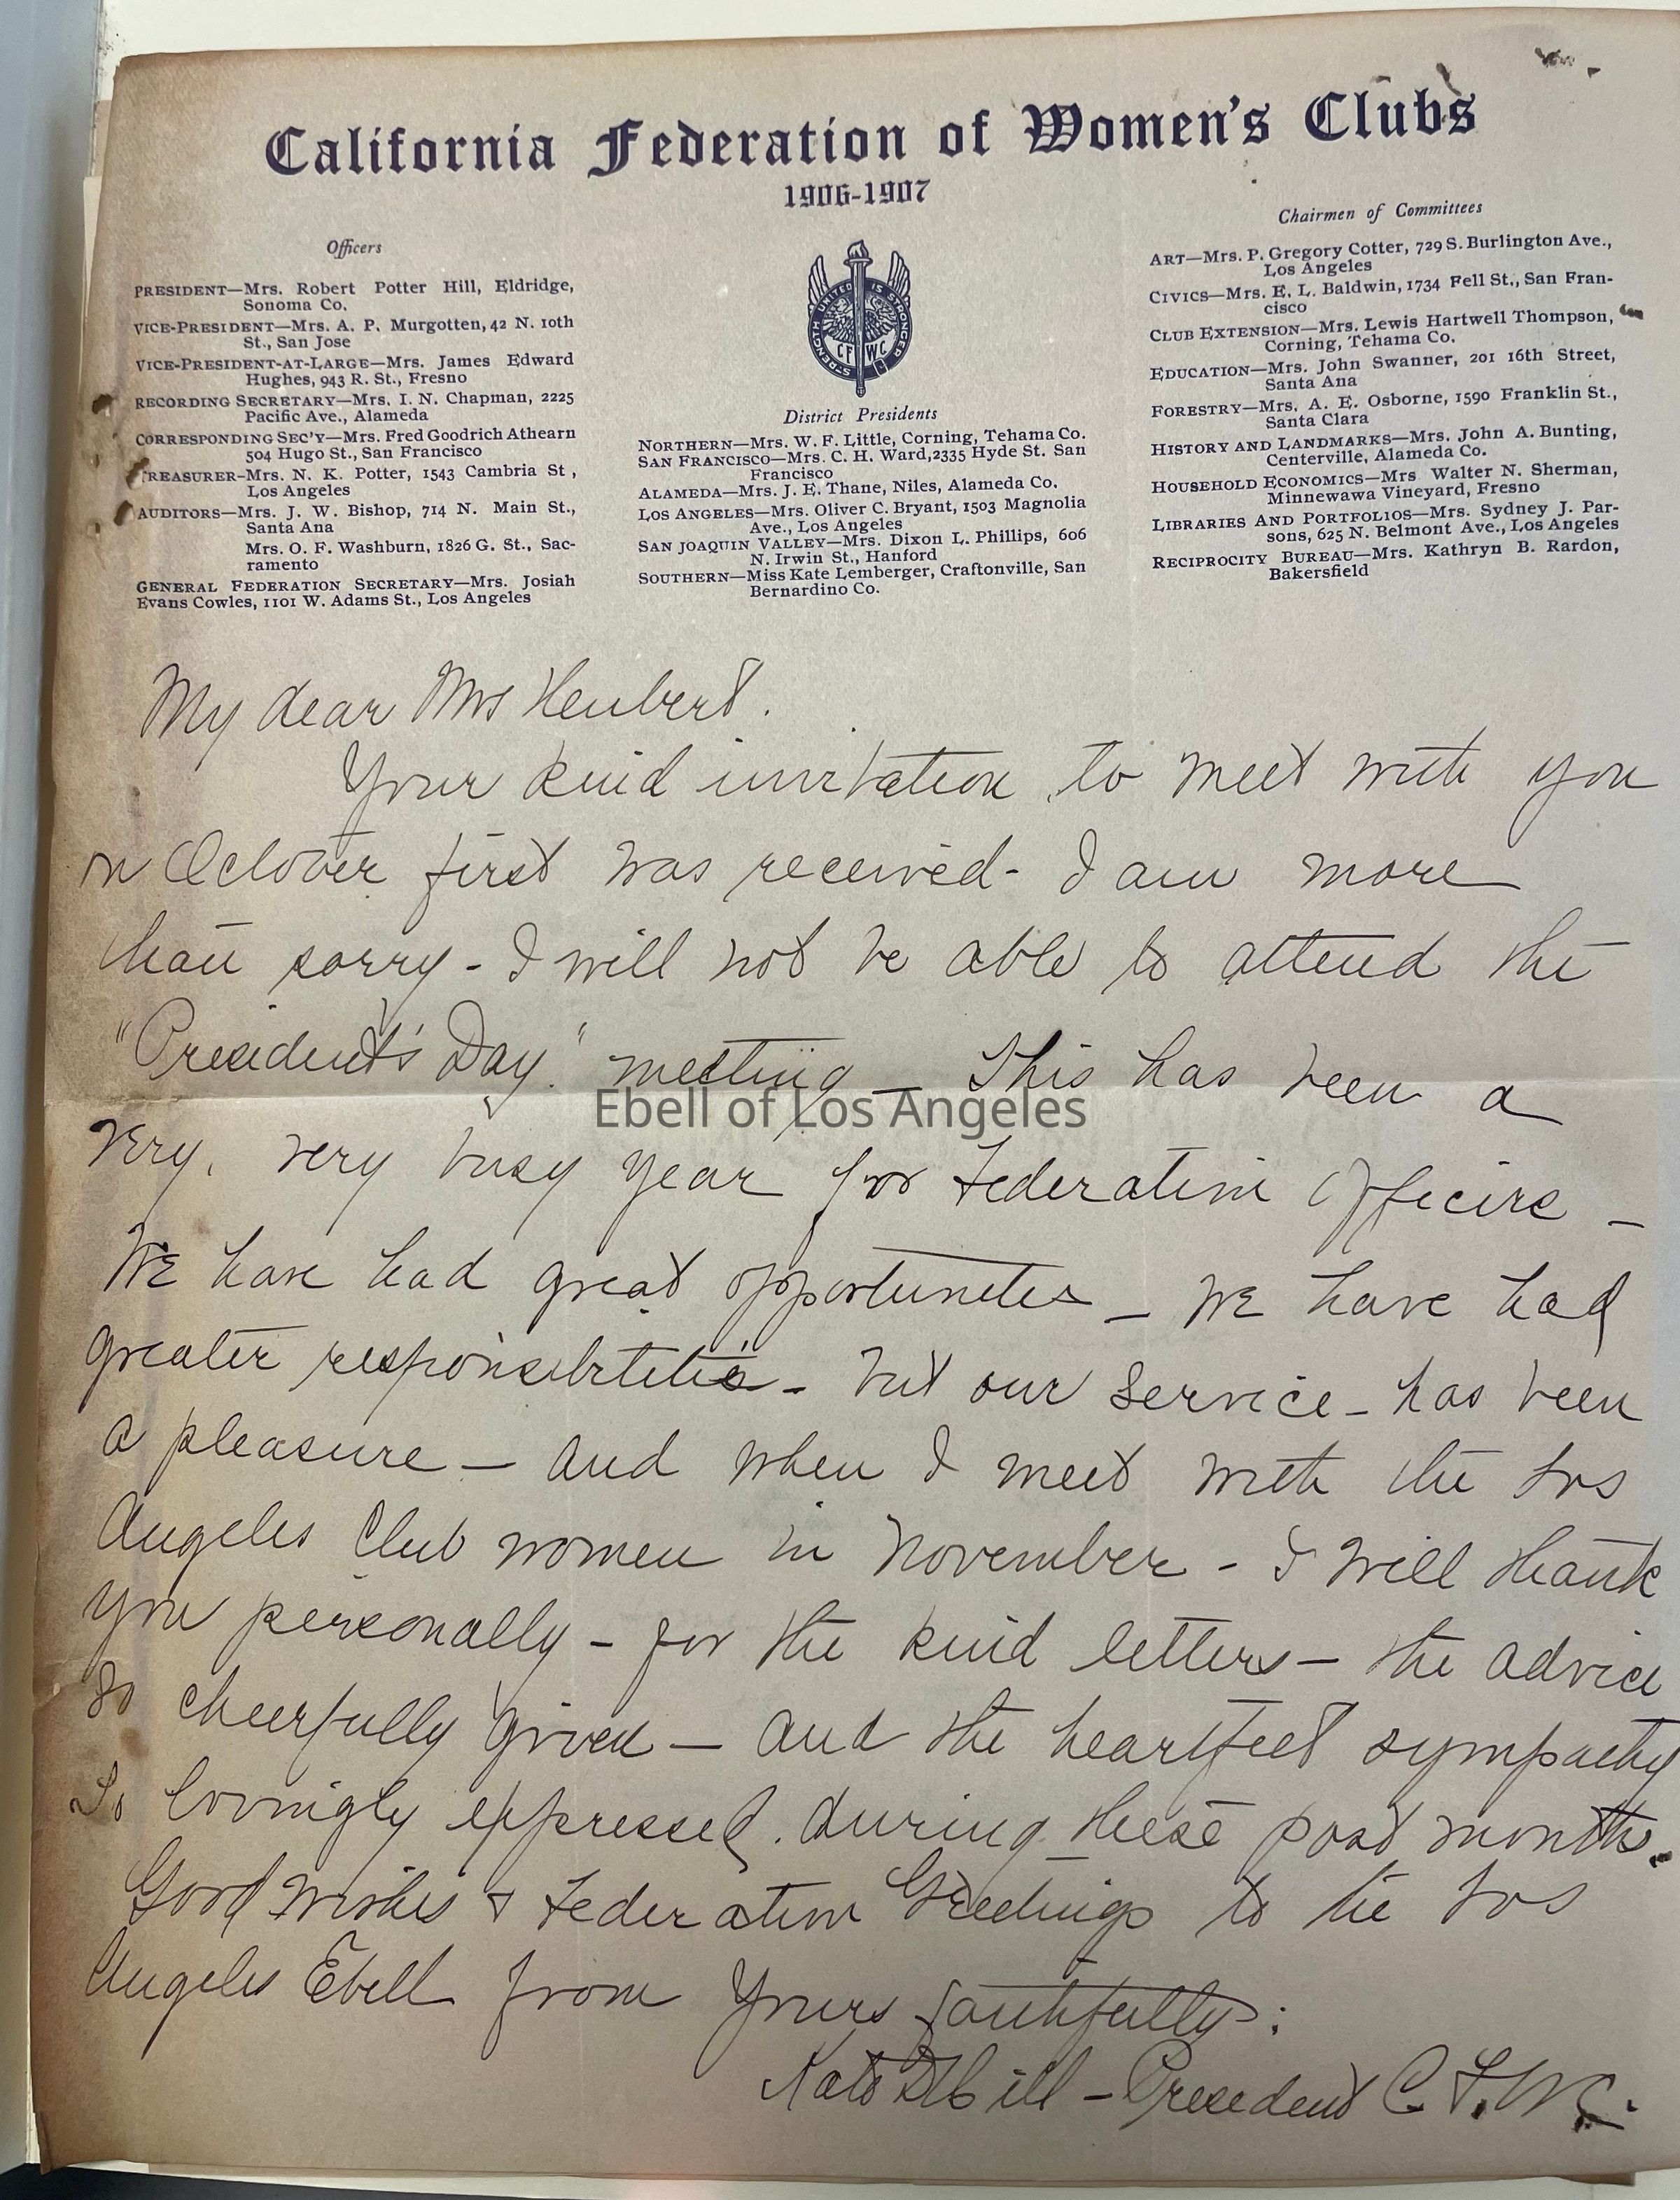 California Federation of Women's Clubs
1906-1907
Officers
PRESIDENT—Mrs. Robert Potter Hill, Eldridge,
Sonoma Co.
VICE-PRESIDENT—Mrs. A. P. Murgotten, 42 N. 10th
St., San Jose
VICE-PRESIDENT-AT-LARGE—Mrs. James Edward
Hughes, 943 R. St., Fresno
RECORDING SECRETARY—Mrs. I. N. Chapman, 2225
Pacific Ave., Alameda
CORRESPONDING SEC'Y—Mrs. Fred Goodrich Athearn
504 Hugo St., San Francisco
TREASURER-Mrs. N. K. Potter, 1543 Cambria St,
Los Angeles
AUDITORS—Mrs. J. W. Bishop, 714 N. Main St.,
Santa Ana
Mrs. O. F. Washburn, 1826 G. St., Sac-
ramento
GENERAL FEDERATION SECRETARY—Mrs. Josiah
Evans Cowles, 1101 W. Adams St., Los Angeles
STRENGTH UNITED IS STRONGER
CF WC
District Presidents
NORTHERN—Mrs. W. F. Little, Corning, Tehama Co.
SAN FRANCISCO—Mrs. C. H. Ward, 2335 Hyde St. San
Francisco
ALAMEDA—Mrs. J. E. Thane, Niles, Alameda Co.
LOS ANGELES—Mrs. Oliver C. Bryant, 1503 Magnolia
Ave., Los Angeles
SAN JOAQUIN VALLEY—Mrs. Dixon L. Phillips, 606
N. Irwin St., Hanford
SOUTHERN—Miss Kate Lemberger, Craftonville, San
Bernardino Co.
Chairmen of Committees
ART—Mrs. P. Gregory Cotter, 729 S. Burlington Ave.,
Los Angeles
CIVICS—Mrs. E. L. Baldwin, 1734 Fell St., San Fran-
cisco
CLUB EXTENSION—Mrs. Lewis Hartwell Thompson,
Corning, Tehama Co.
EDUCATION—Mrs. John Swanner, 201 16th Street,
Santa Ana
FORESTRY—Mrs. A. E. Osborne, 1590 Franklin St.,
Santa Clara
HISTORY AND LANDMARKS—Mrs. John A. Bunting,
Centerville, Alameda Co.
HOUSEHOLD ECONOMICS—Mrs Walter N. Sherman,
Minnewawa Vineyard, Fresno
LIBRARIES AND PORTFOLIOS—Mrs. Sydney J. Par-
sons, 625 N. Belmont Ave., Los Angeles
RECIPROCITY BUREAU—Mrs. Kathryn B. Rardon,
Bakersfield
My dear Mrs
Your kind invitation to meet with you
on October first was received - I am more
than sorry - I will not be able to attend the
"President's Day." meeting - This has been a
Ebell of Los Angeles
very, very busy year for Federation Officers -
We have had great opportunities - We have had
greater responsibilities - but our service - has been
a pleasure - and when I meet with the Los
Angeles Club women in November - I will thank
you personally - for the kind letters - the advice
so cheerfully given - and the heartfelt sympathy
so lovingly expressed. during these past months.
Good Wishes & Federation Greetings to the Los
Angeles Ebell from Yours faithfully:
Kate Hill - President C. F. W. C.